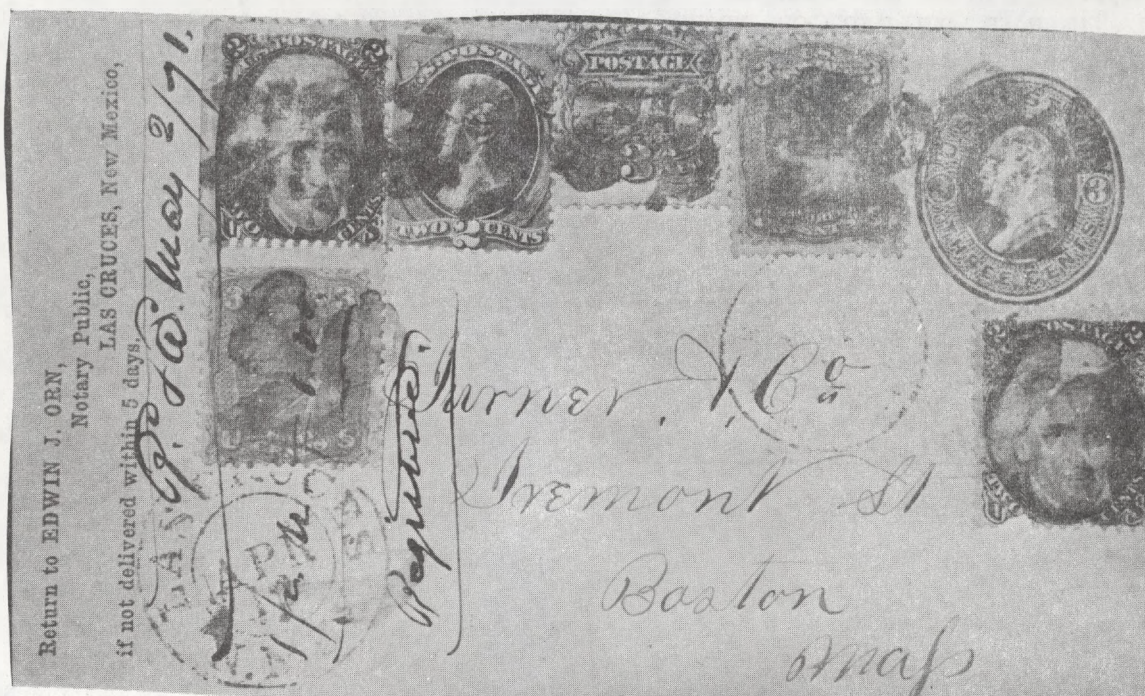 Return to EDWIN J. ORN,
Notary Public,
LAS CRUCES, New Mexico,
if not delivered within 5 days.
May 2/71.
Registered.
U.S. POSTAGE
TWO CENTS
U.S. POSTAGE
TWO 2 CENTS
POSTAGE
3
3 3
THREE CENTS
3
3 3
U.S. POSTAGE
LAS CRUCES
Turner & Co
Tremont St
Boston
Mass